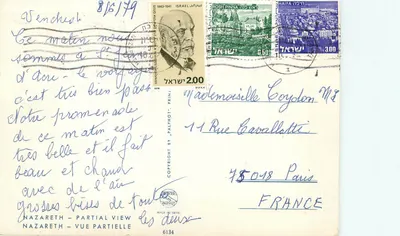 Vendredi 8/6/79
Ce matin nous
sommes à St
d'Acre - le voyage
c'est très bien passé
Notre promenade
de ce matin est
très belle et il fait
beau et chaud
avec de l'air
grosses bises de toutes
les deux
NAZARETH – PARTIAL VIEW
NAZARETH – VUE PARTIELLE
COPYRIGHT BY "PALPHOT"
6134
ISRAEL
2.00
ISRAEL
ISRAEL
3.00
Mademoiselle Coydon M
11 Rue Cavallotti
75018 Paris
FRANCE